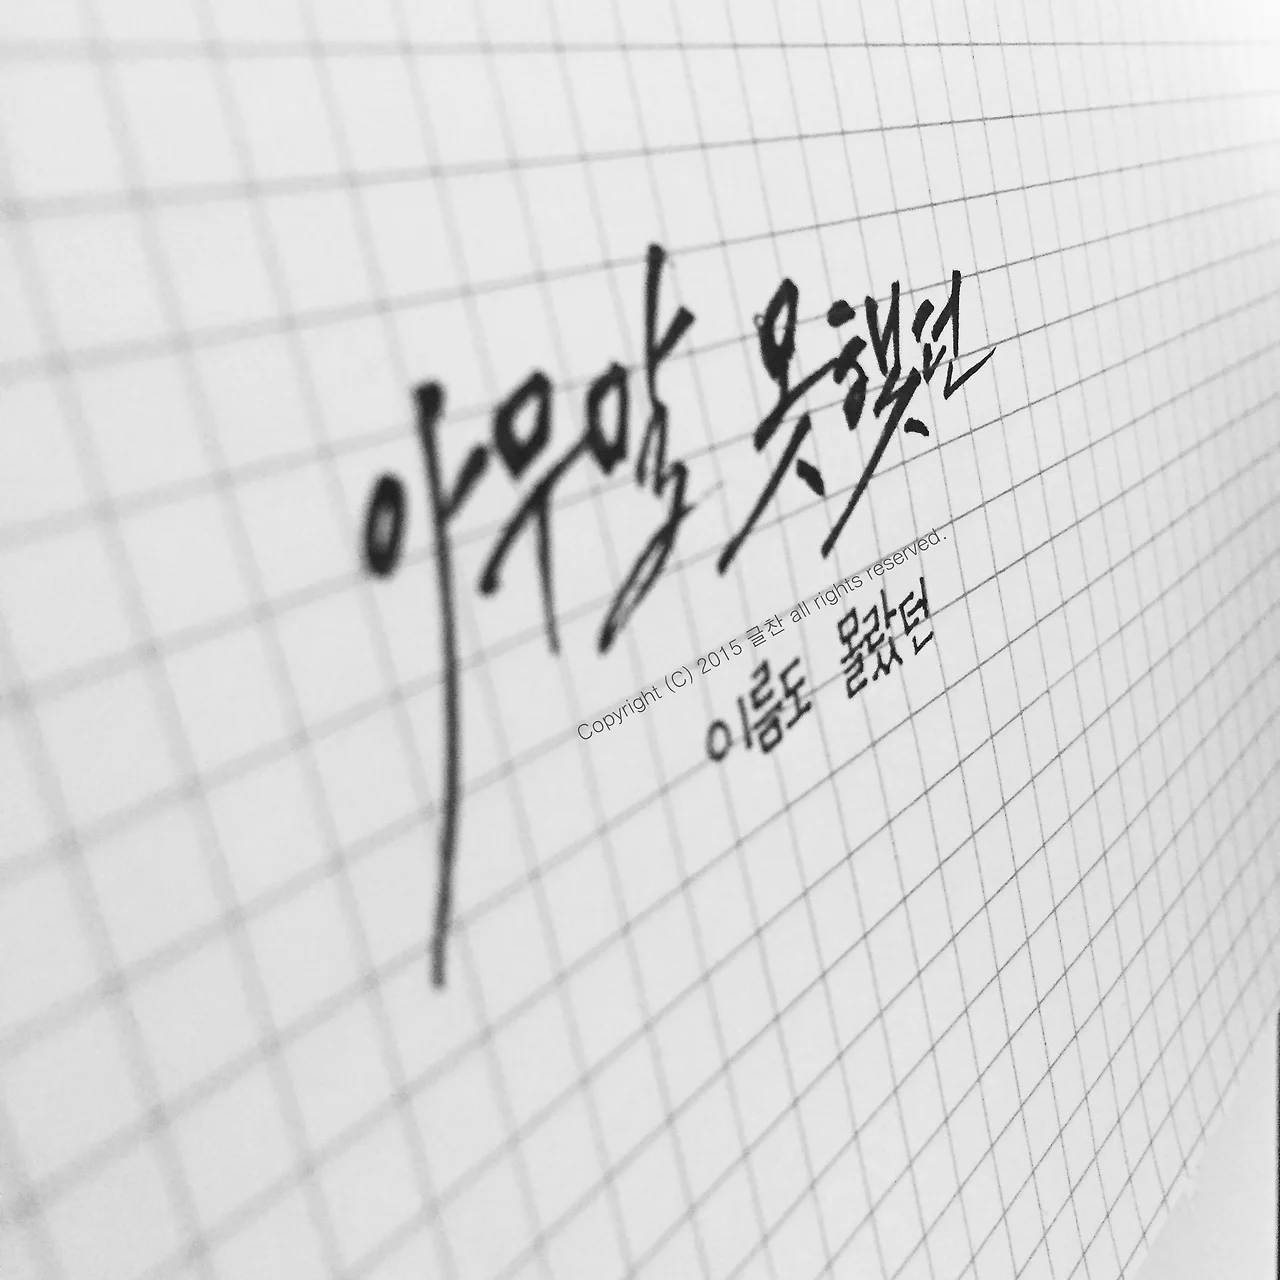 아무말 못했던
Copyright (C) 2015 글찬 all rights reserved.
이름도 몰랐던